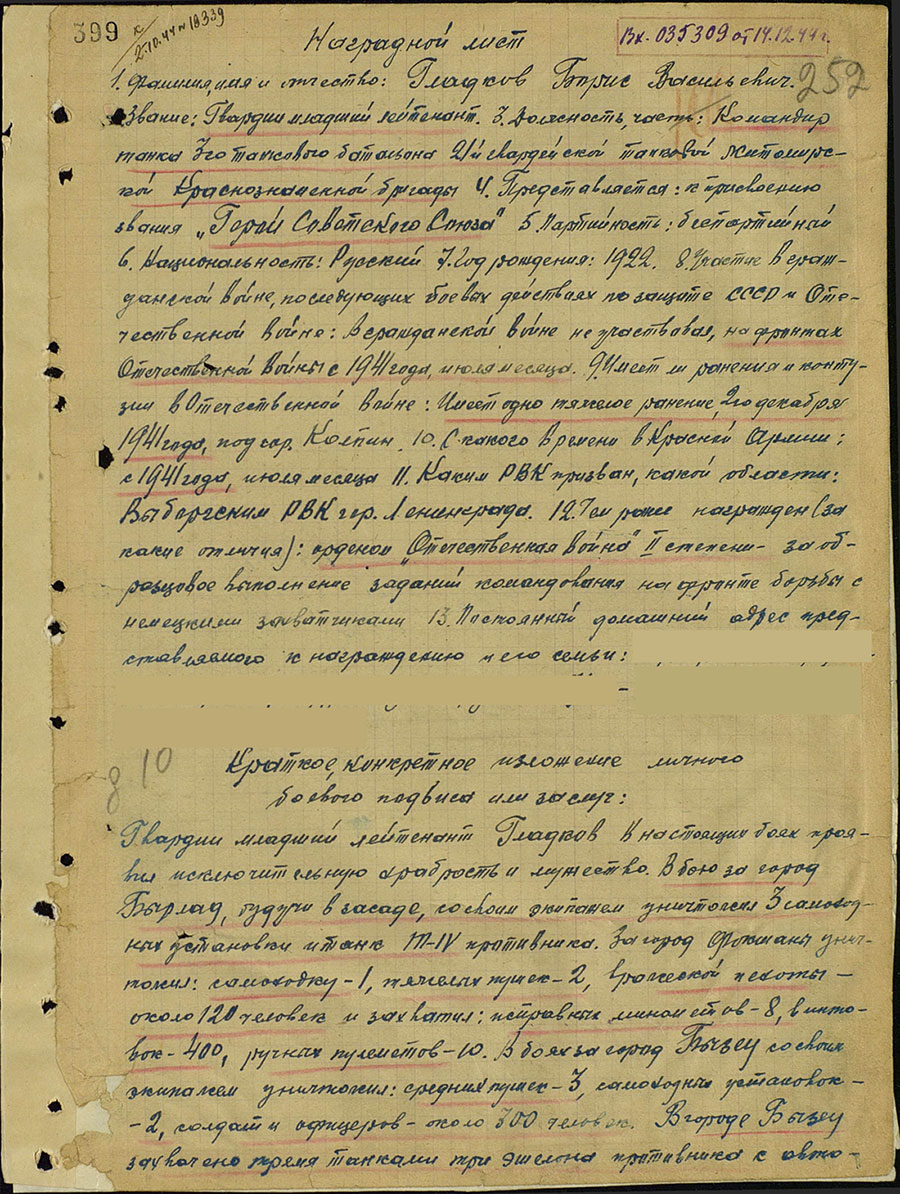 399
к
2.10.44 № 18339
Вх. 035309 от 14.12.44 г.
252
Наградной лист
1. Фамилия, имя и отчество: Гладков Борис Васильевич.
Звание: Гвардии младший лейтенант. 3. Должность, часть: Командир
танка 3го танкового батальона 21й гвардейской танковой Житомирс-
кой Краснознаменной бригады 4. Представляется: к присвоению
звания „Герой Советского Союза" 5. Партийность: беспартийный
6. Национальность: Русский 7. Год рождения: 1922. 8. Участие в граж-
данской войне, последующих боевых действиях по защите СССР и Оте-
чественной войне: в гражданской войне не участвовал, на фронтах
Отечественной войны с 1941 года, июля месяца. 9. Имеет ли ранения и конту-
зии в Отечественной войне: Имеет одно тяжелое ранение, 2го декабря
1941 года, под гор. Колпин. 10. С какого времени в Красной Армии:
с 1941 года, июля месяца 11. Каким РВК призван, какой области:
Выборгским РВК гор. Ленинграда. 12. Чем ранее награжден (за
какие отличия): орденом „Отечественная война" II степени - за об-
разцовое выполнение заданий командования на фронте борьбы с
немецкими захватчиками 13. Постоянный домашний адрес пред-
ставляемого к награждению и его семьи:
д 10
Краткое, конкретное изложение личного
боевого подвига или заслуг:
Гвардии младший лейтенант Гладков в настоящих боях проя-
вил исключительную храбрость и мужество. В бою за город
Бырлад, будучи в засаде, со своим экипажем уничтожил 3 самоход-
ных установки и танк Т-IV противника. За город Фокшаны унич-
тожил: самоходку - 1, тяжелых пушек - 2, вражеской пехоты -
около 120 человек и захватил: исправных минометов - 8, винто-
вок - 400, ручных пулеметов - 10. В боях за город Бызеу со своим
экипажем уничтожил: средних пушек - 3, самоходных установок -
- 2, солдат и офицеров - около 300 человек. В городе Бызеу
захвачено тремя танками три эшелона противника с авто-